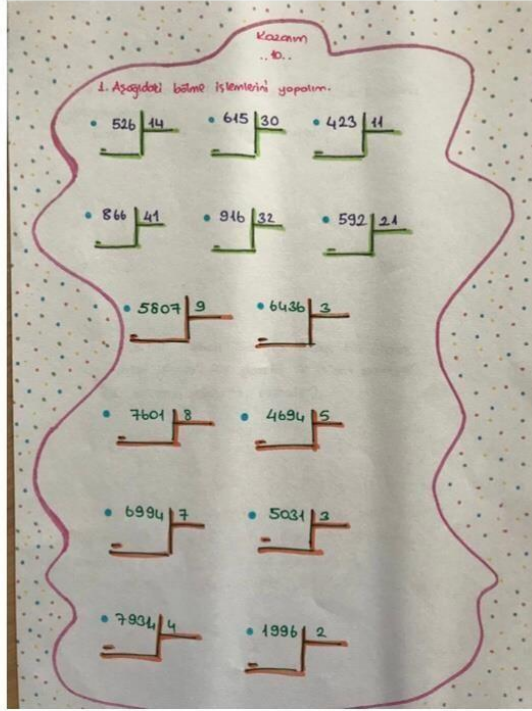 Kazanım
..10..
1. Aşağıdaki bölme işlemlerini yapalım.
• 526 14 • 615 30 • 423 11
• 866 41 • 916 32 • 592 21
• 5807 9 • 6436 3
• 7601 8 • 4694 5
• 6994 7 • 5031 3
• 7934 4 • 1996 2